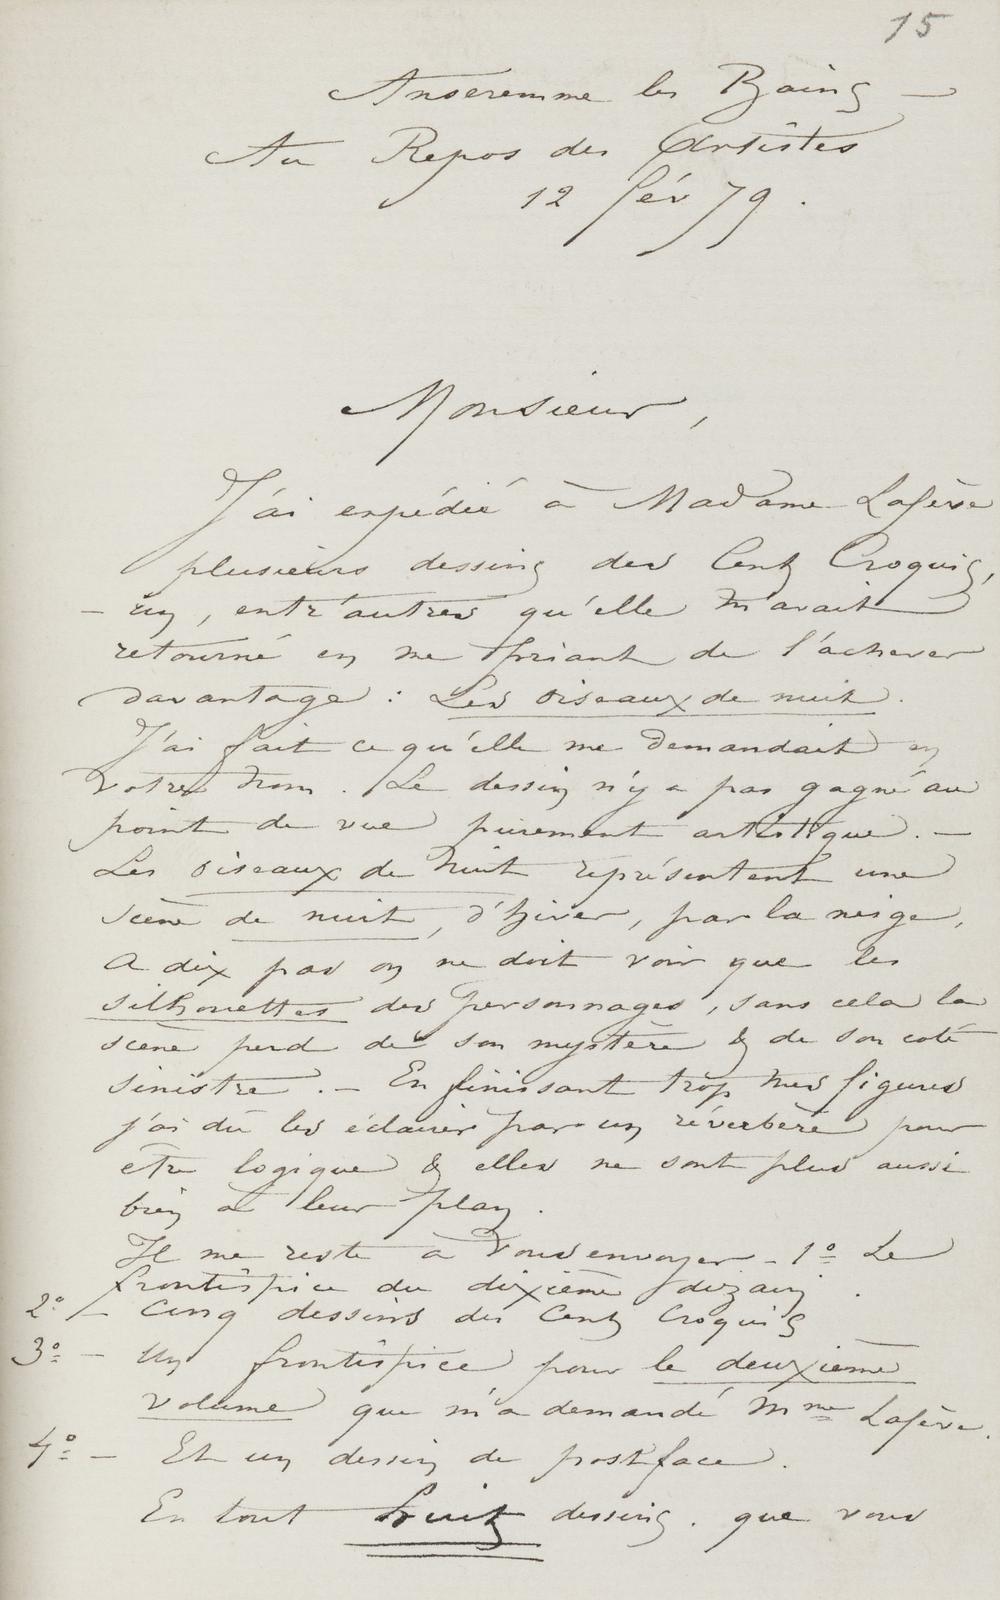 15
Anseremme les Bains —
Au Repos des Artistes
12 fév 79.
Monsieur,
J'ai expédié à Madame Lafève
plusieurs dessins des Cent Croquis,
– un, entr'autres qu'elle m'avait
retourné en me priant de l'achever
davantage : Les oiseaux de nuit.
J'ai fait ce qu'elle me demandait en
votre nom. Le dessin n'y a pas gagné au
point de vue purement artistique. —
Les oiseaux de Nuit représentent une
scène de nuit, d'hiver, par la neige,
A dix pas on ne doit voir que les
silhouettes des personnages, sans cela la
scène perd de son mystère & de son coté
sinistre. – En finissant trop mes figures
j'ai dû les éclairer par un réverbère pour
être logique & elles ne sont plus aussi
bien à leur plan.
Il me reste à vous envoyer – 1º Le
frontispice du dixième dizain.
2º – Cinq dessins des Cent Croquis
3º – Un frontispice pour le deuxième
volume que m'a demandé Mme Lafève.
4º – Et un dessin de postface.
En tout huit dessins. que vous